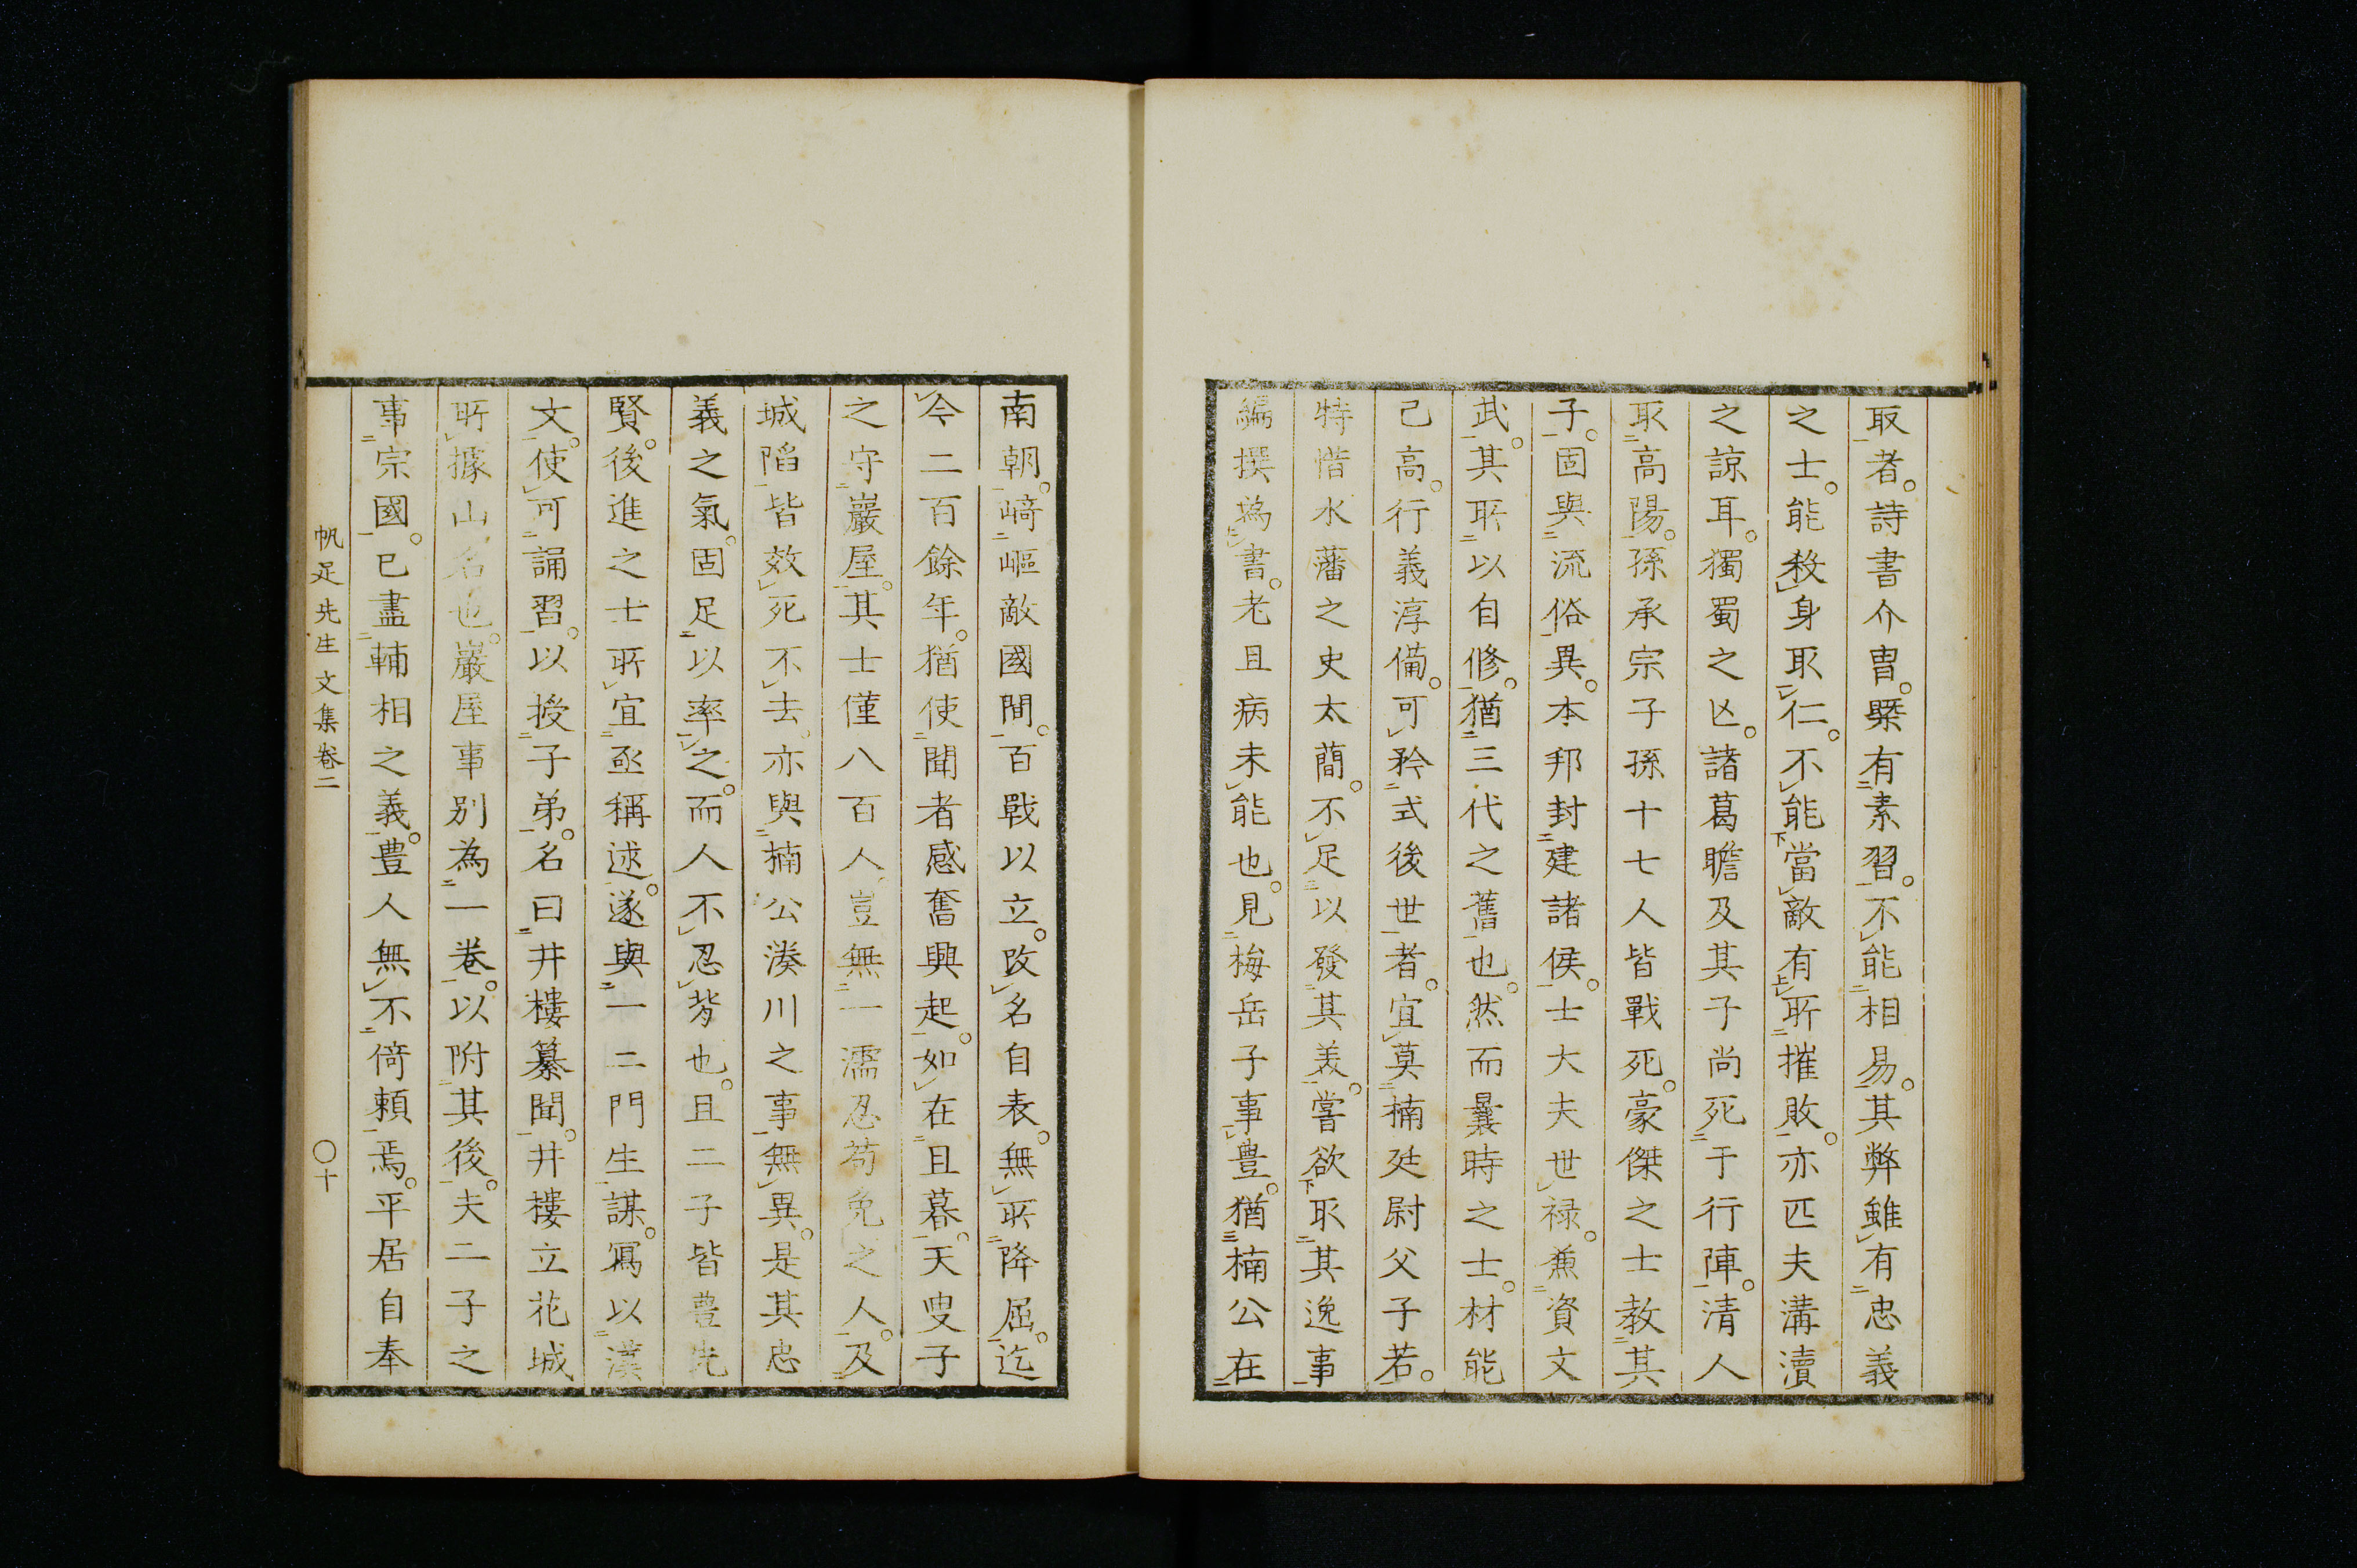 取者。詩書介冑。槩有素習。不能相易。其弊雖有忠義
之士。能殺身取仁。不能當敵有所摧敗。亦匹夫溝瀆
之諒耳。獨蜀之亾。諸葛瞻及其子尚死于行陣。清人
取高陽。孫承宗子孫十七人皆戰死。豪傑之士教其
子。固與流俗異。本邦封建諸侯。士大夫世禄。兼資文
武。其所以自修。猶三代之舊也。然而曩時之士。材能
己高。行義淳備。可矜式後世者。宜莫楠廷尉父子若。
特惜水藩之史太蕳。不足以發其美。嘗欲取其逸事
編撰為書。老且病未能也。見梅岳子事豊。猶楠公在
南朝。﨑嶇敵國間。百戰以立。改名自表。無所降屈。迄
今二百餘年。猶使聞者感奮興起。如在且暮。天叟子
之守巖屋。其士僅八百人、豈無一濡忍苟免之人。及
城陷皆效死不去。亦與楠公湊川之事無異。是其忠
義之氣。固足以率之。而人不忍背也。且二子皆豊先
賢。後進之士所宜亟稱述。遂與一二門生謀。寫以漢
文。使可誦習。以授子弟。名曰井樓纂聞。井樓立花城
所據山名也。巖屋事別為一巻。以附其後。夫二子之
事宗國。已盡輔相之義。豊人無不倚頼焉。平居自奉
帆足先生文集巻二 〇十